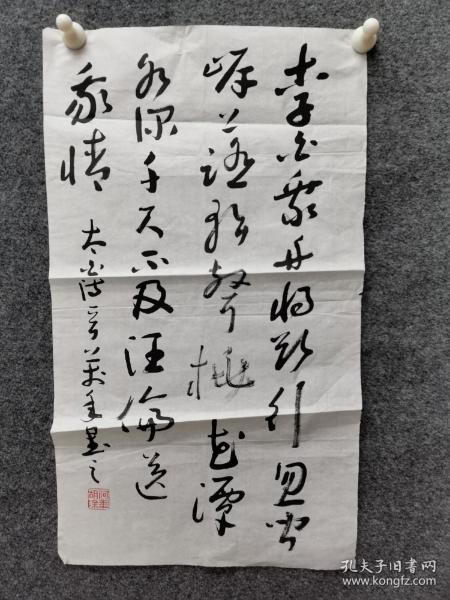 李白乘舟将欲行忽闻
岸上踏歌聲桃花潭
水深千尺不及汪倫送
我情
太白诗一首
孔夫子旧书网
www.kongfz.com